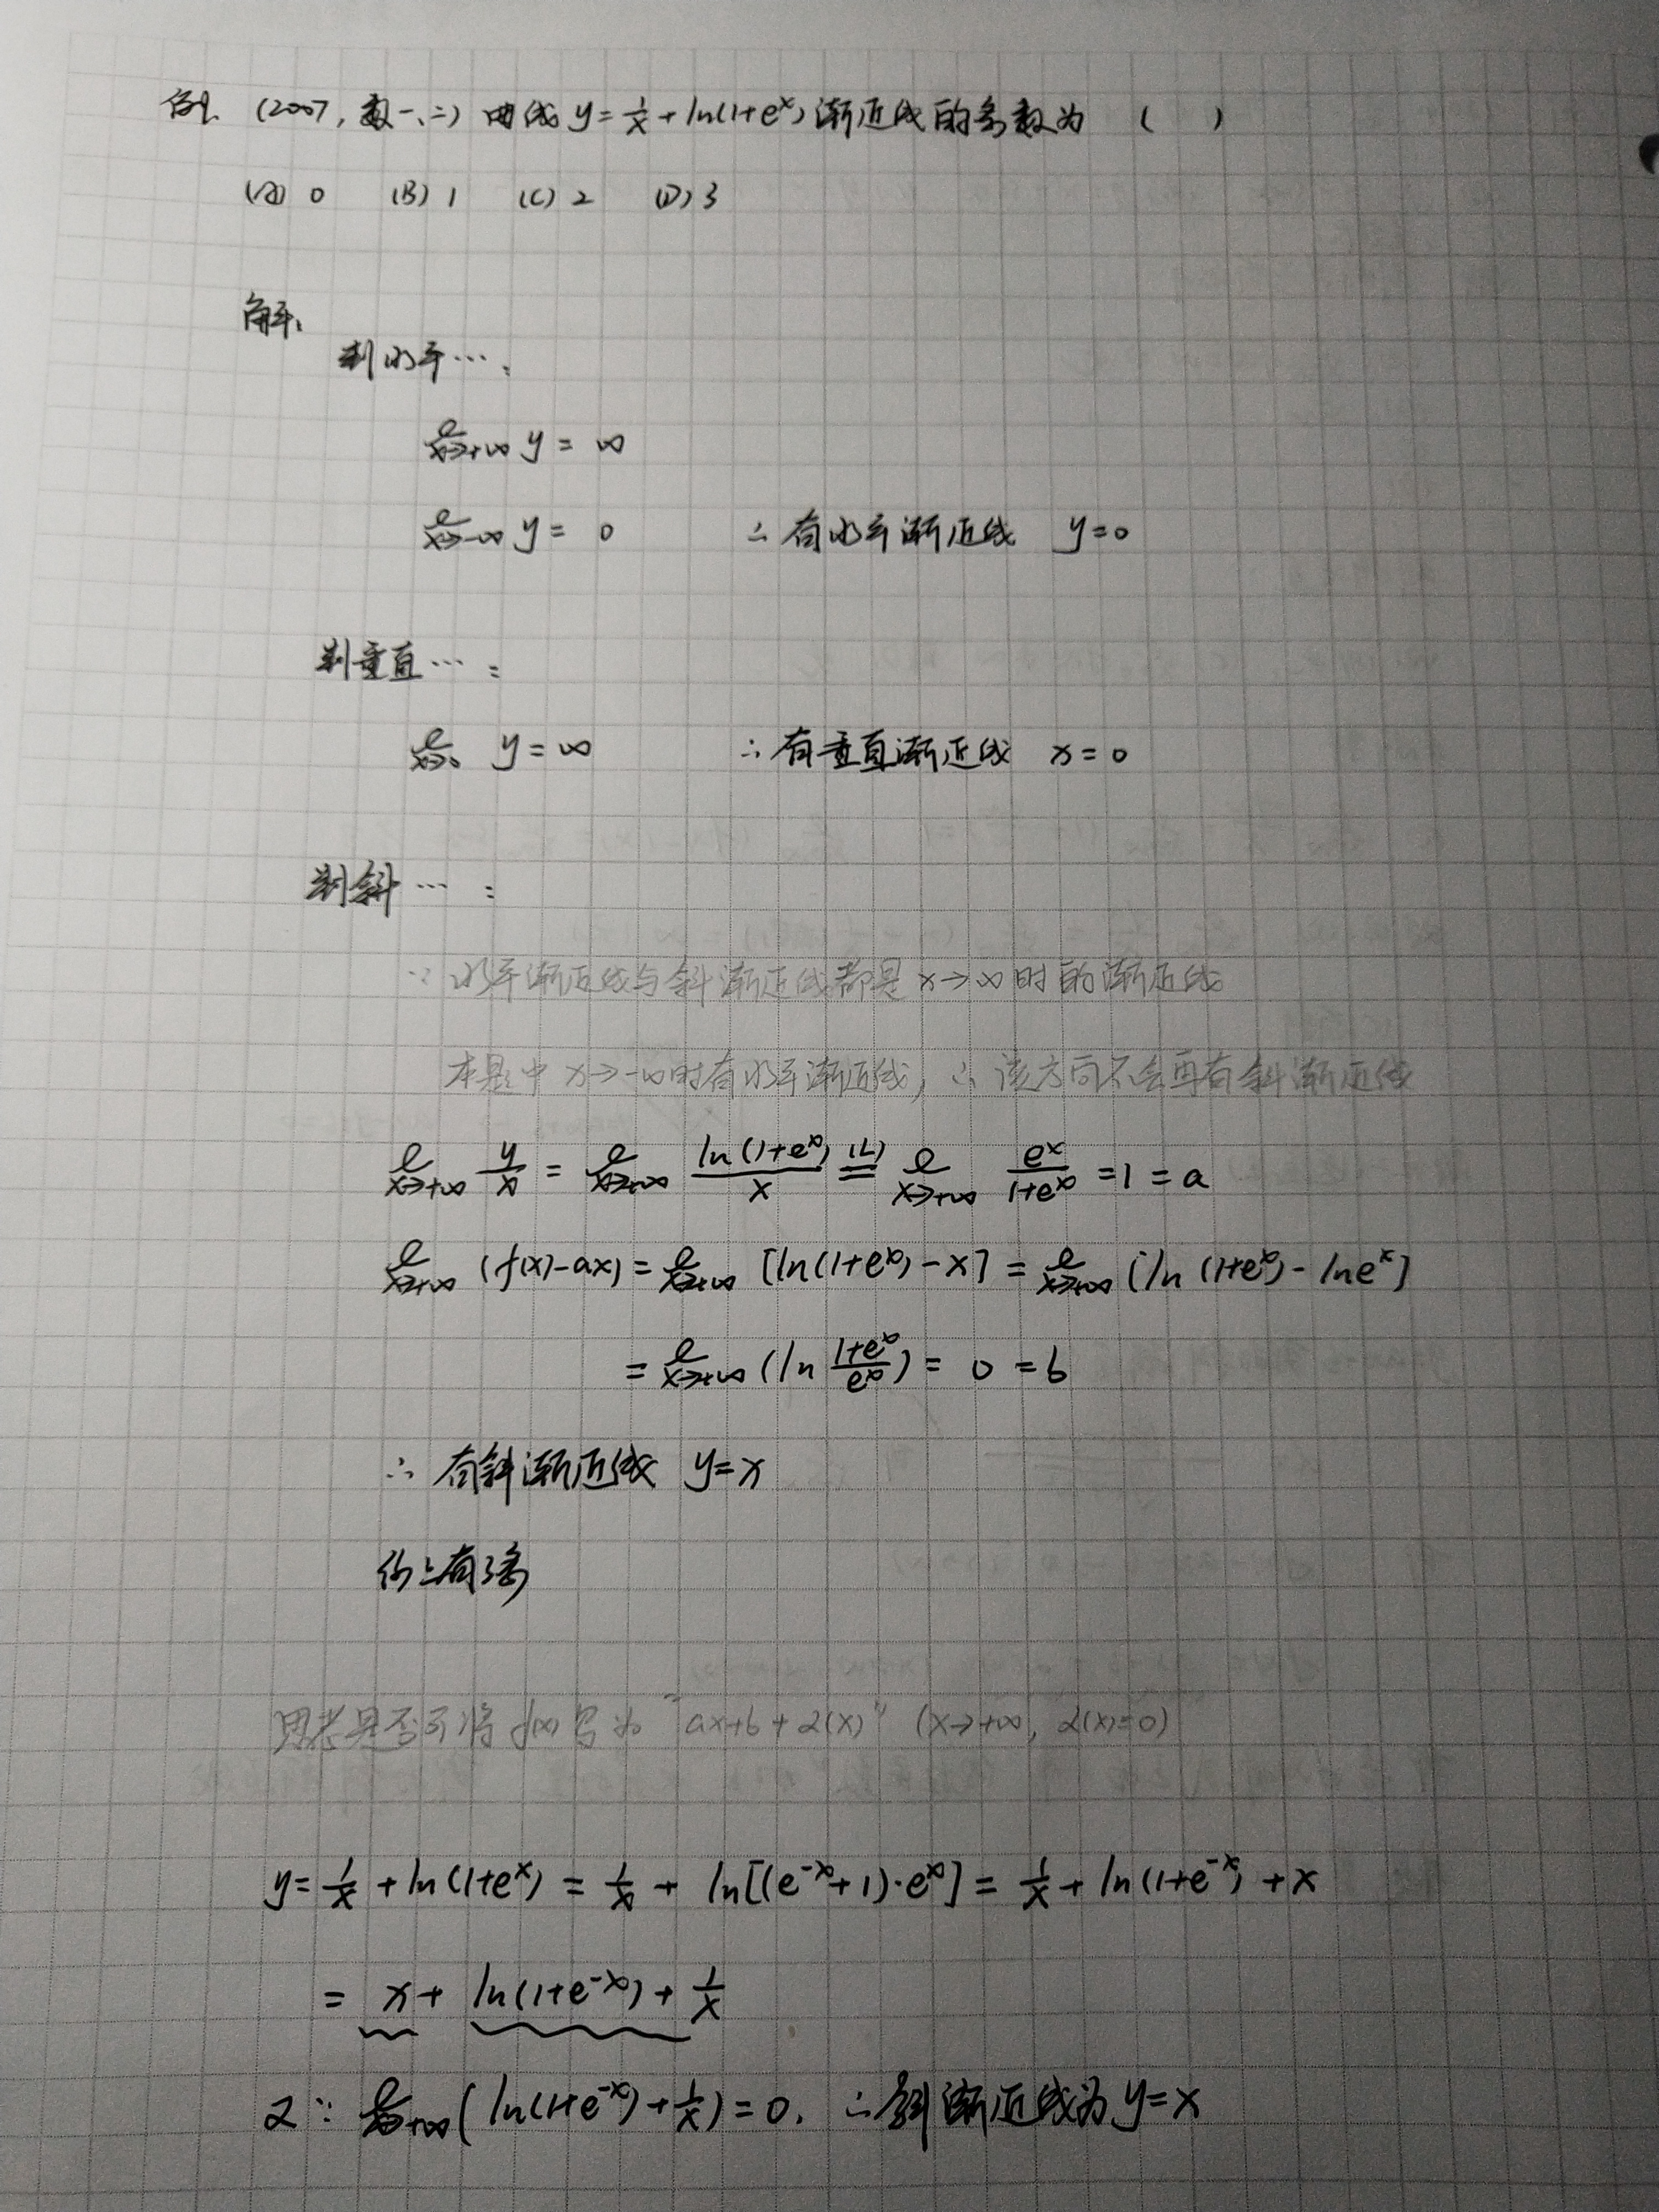 例. (2007, 数一、二) 曲线 y = 1/x + ln(1+e^x) 渐近线的条数为 (    )
(A) 0  (B) 1  (C) 2  (D) 3
解:
判水平… :
lim x→+∞ y = ∞
lim x→-∞ y = 0  ∴ 有水平渐近线 y=0
判垂直… :
lim x→0 y = ∞  ∴ 有垂直渐近线 x = 0
判斜… :
∵ 水平渐近线与斜渐近线都是 x→∞ 时的渐近线
本题中 x→-∞ 时有水平渐近线, ∴ 该方向不会再有斜渐近线
lim x→+∞ y/x = lim x→+∞ ln(1+e^x)/x (L)= lim x→+∞ e^x/(1+e^x) = 1 = a
lim x→+∞ (f(x)-ax) = lim x→+∞ [ln(1+e^x) - x] = lim x→+∞ [ln(1+e^x) - ln e^x]
= lim x→+∞ (ln (1+e^x)/e^x) = 0 = b
∴ 有斜渐近线 y=x
综上有3条
思考是否可将 f(x) 写为 "ax+b+α(x)" (x→+∞, α(x)=0)
y = 1/x + ln(1+e^x) = 1/x + ln[(e^-x + 1)·e^x] = 1/x + ln(1+e^-x) + x
= x + ln(1+e^-x) + 1/x
又∵ lim x→+∞ (ln(1+e^-x) + 1/x) = 0. ∴ 斜渐近线为 y=x